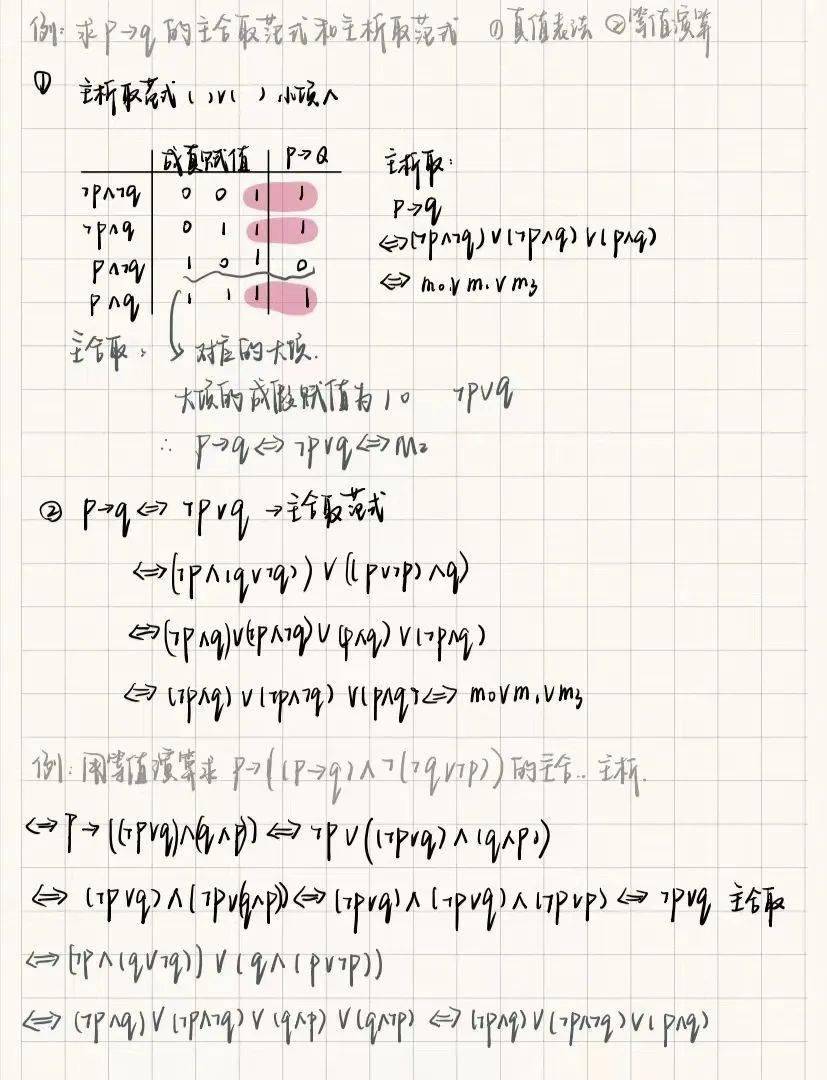 例: 求 p→q 的主合取范式和主析取范式 ①真值表法 ②等值演算
① 主析取范式 ( )∨( ) 小项∧
成真赋值 P→Q
¬p∧¬q 0 0 1 1
¬p∧q 0 1 1 1
p∧¬q 1 0 1 0
p∧q 1 1 1 1
主析取:
p→q
⇔(¬p∧¬q)∨(¬p∧q)∨(p∧q)
⇔ m₀∨m₁∨m₃
主合取: 对应的大项.
大项的成假赋值为 1 0 ¬p∨q
∴ p→q⇔¬p∨q⇔M₂
② p→q⇔ ¬p∨q →主合取范式
⇔(¬p∧(q∨¬q))∨((p∨¬p)∧q)
⇔(¬p∧q)∨(¬p∧¬q)∨(p∧q)∨(¬p∧q)
⇔(¬p∧q)∨(¬p∧¬q)∨(p∧q)⇔ m₀∨m₁∨m₃
例: 用等值演算求 p→((p→q)∧¬(¬q∨¬p))的主合.. 主析.
⇔p→((¬p∨q)∧(q∧p))⇔¬p∨((¬p∨q)∧(q∧p))
⇔(¬p∨q)∧(¬p∨(q∧p))⇔(¬p∨q)∧(¬p∨q)∧(¬p∨p)⇔¬p∨q 主合取
⇔(¬p∧(q∨¬q))∨(q∧(p∨¬p))
⇔(¬p∧q)∨(¬p∧¬q)∨(q∧p)∨(q∧¬p)⇔(¬p∧q)∨(¬p∧¬q)∨(p∧q)